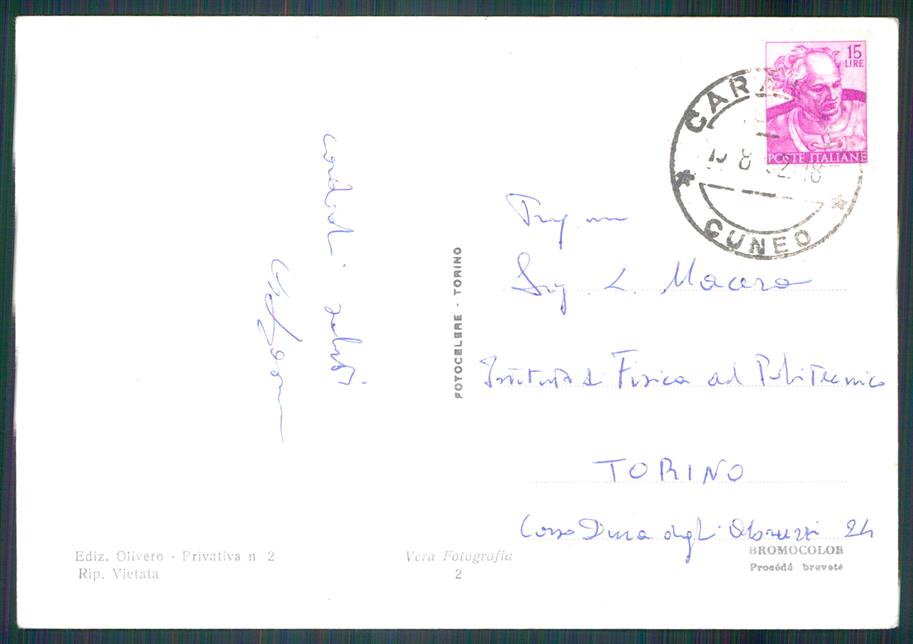 15
LIRE
POSTE ITALIANE
CUNEO
cordiali saluti
Sig. L. Macera
Istituto di Fisica del Politecnico
TORINO
Corso Duca degli Abruzzi 24
FOTOCELERE - TORINO
Ediz. Olivero - Privativa n 2
Rip. Vietata
Vera Fotografia
2
BROMOCOLOR
Procédé breveté